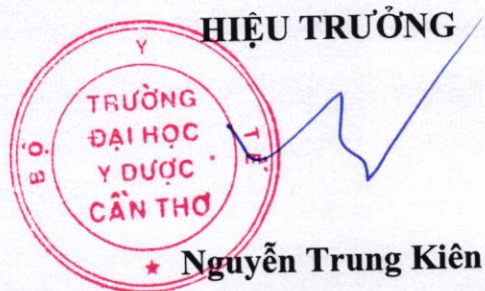 HIỆU TRƯỞNG
BỘ Y TẾ
TRƯỜNG
ĐẠI HỌC
Y DƯỢC
CẦN THƠ
Nguyễn Trung Kiên